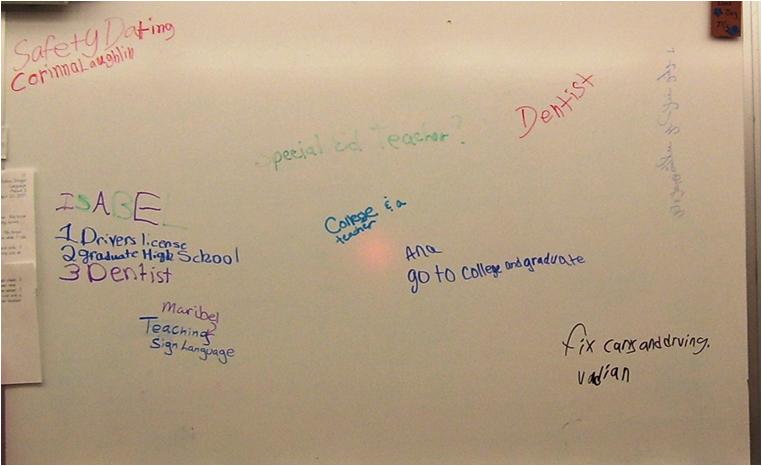 Safety Dating
Corinna Laughlin
Dentist
Special Ed Teacher?
ISABEL
1 Drivers license
2 graduate High School
3 Dentist
College & a
teacher
Ana
go to college and graduate
Maribel
Teaching
Sign Language
fix cars and drving.